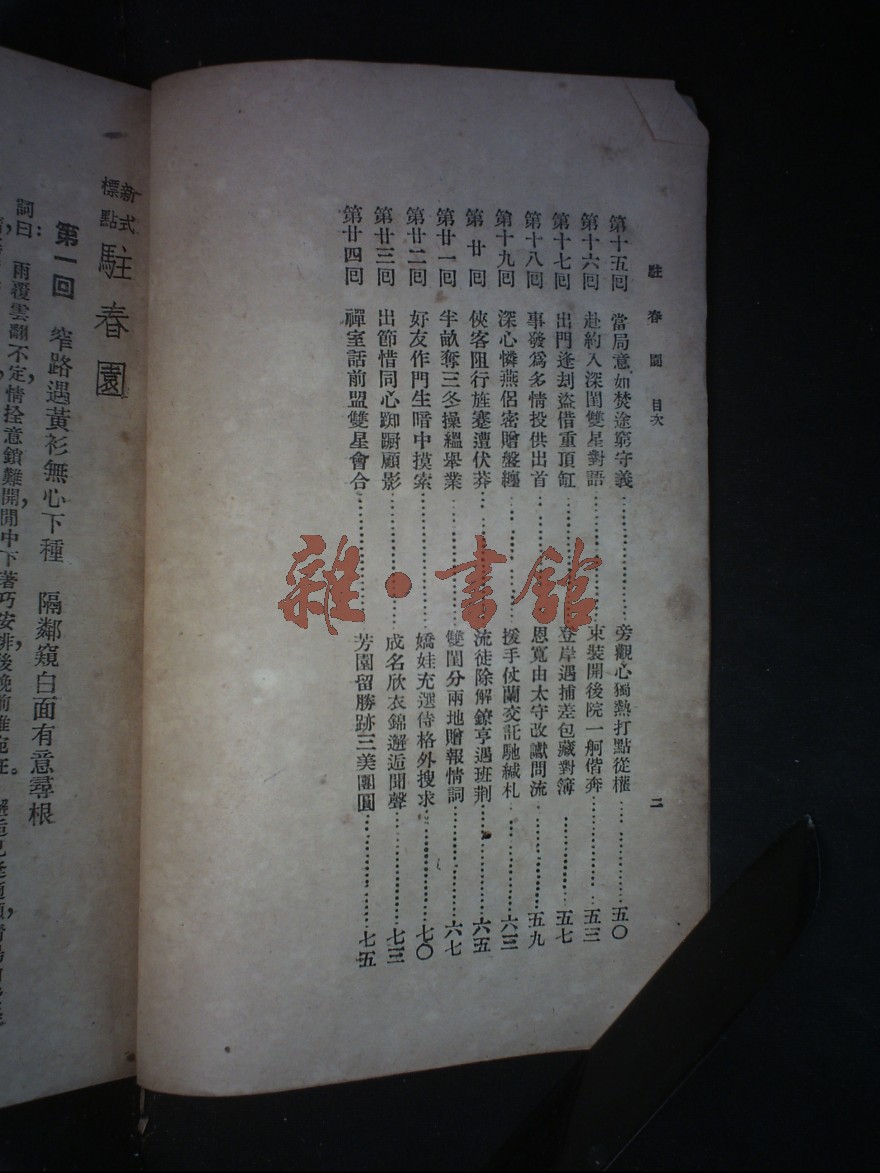 駐春園 目次 二
第十五回 當局意如焚途窮守義 旁觀心獨熱打點從權 五〇
第十六回 赴約入深閨雙星對語 束裝開後院一舸偕奔 五三
第十七回 出門逢刧盜借重頂缸 登岸遇捕差包藏對簿 五七
第十八回 事發爲多情投供出首 恩寬由太守改讞問流 五九
第十九回 深心憐燕侶密贈盤纏 援手仗蘭交託馳緘札 六三
第廿回 俠客阻行旌塞遭伏莽 流徒除解鐐亨遇班荆 六五
第廿一回 半畝奪三冬操縕舉業 雙閨分兩地贈報情詞 六七
第廿二回 好友作門生暗中摸索 嬌娃充選侍格外搜求 七〇
第廿三回 出節惜同心踟蹰顧影 成名欣衣錦邂逅聞聲 七三
第廿四回 禪室話前盟雙星會合 芳園留勝跡三美團圓 七五
新式標點 駐春園
第一回 窄路遇黃衫無心下種 隔鄰窺白面有意尋根
詞曰：雨覆雲翻不定，情拴意鎖難開，閒中下著巧安排
雜·書館